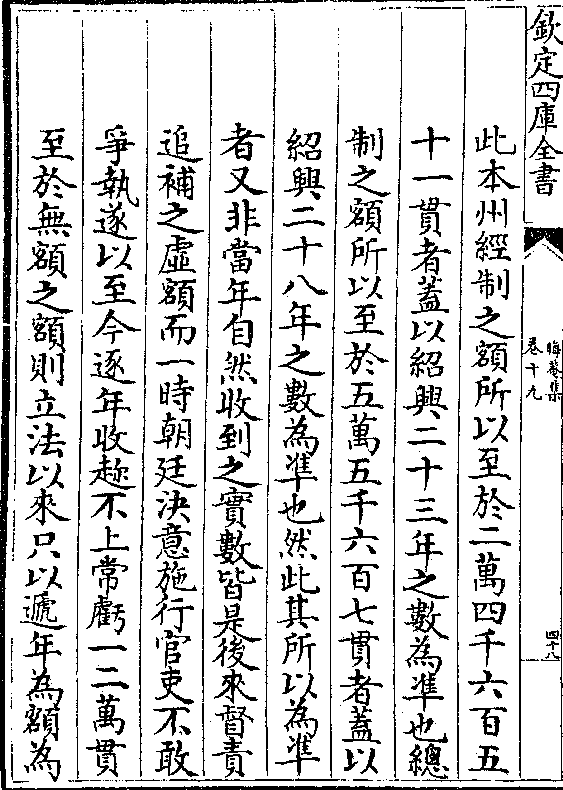 欽定四庫全書
晦菴集
卷十九
四十八
此本州經制之額所以至於二萬四千六百五
十一貫者蓋以紹興二十三年之數為準也總
制之額所以至於五萬五千六百七貫者蓋以
紹興二十八年之數為準也然此其所以為準
者又非當年自然收到之實數皆是後來督責
追補之虛額而一時朝廷決意施行官吏不敢
爭執遂以至今逐年收趂不上常虧一二萬貫
至於無額之額則立法以來只以遞年為額為